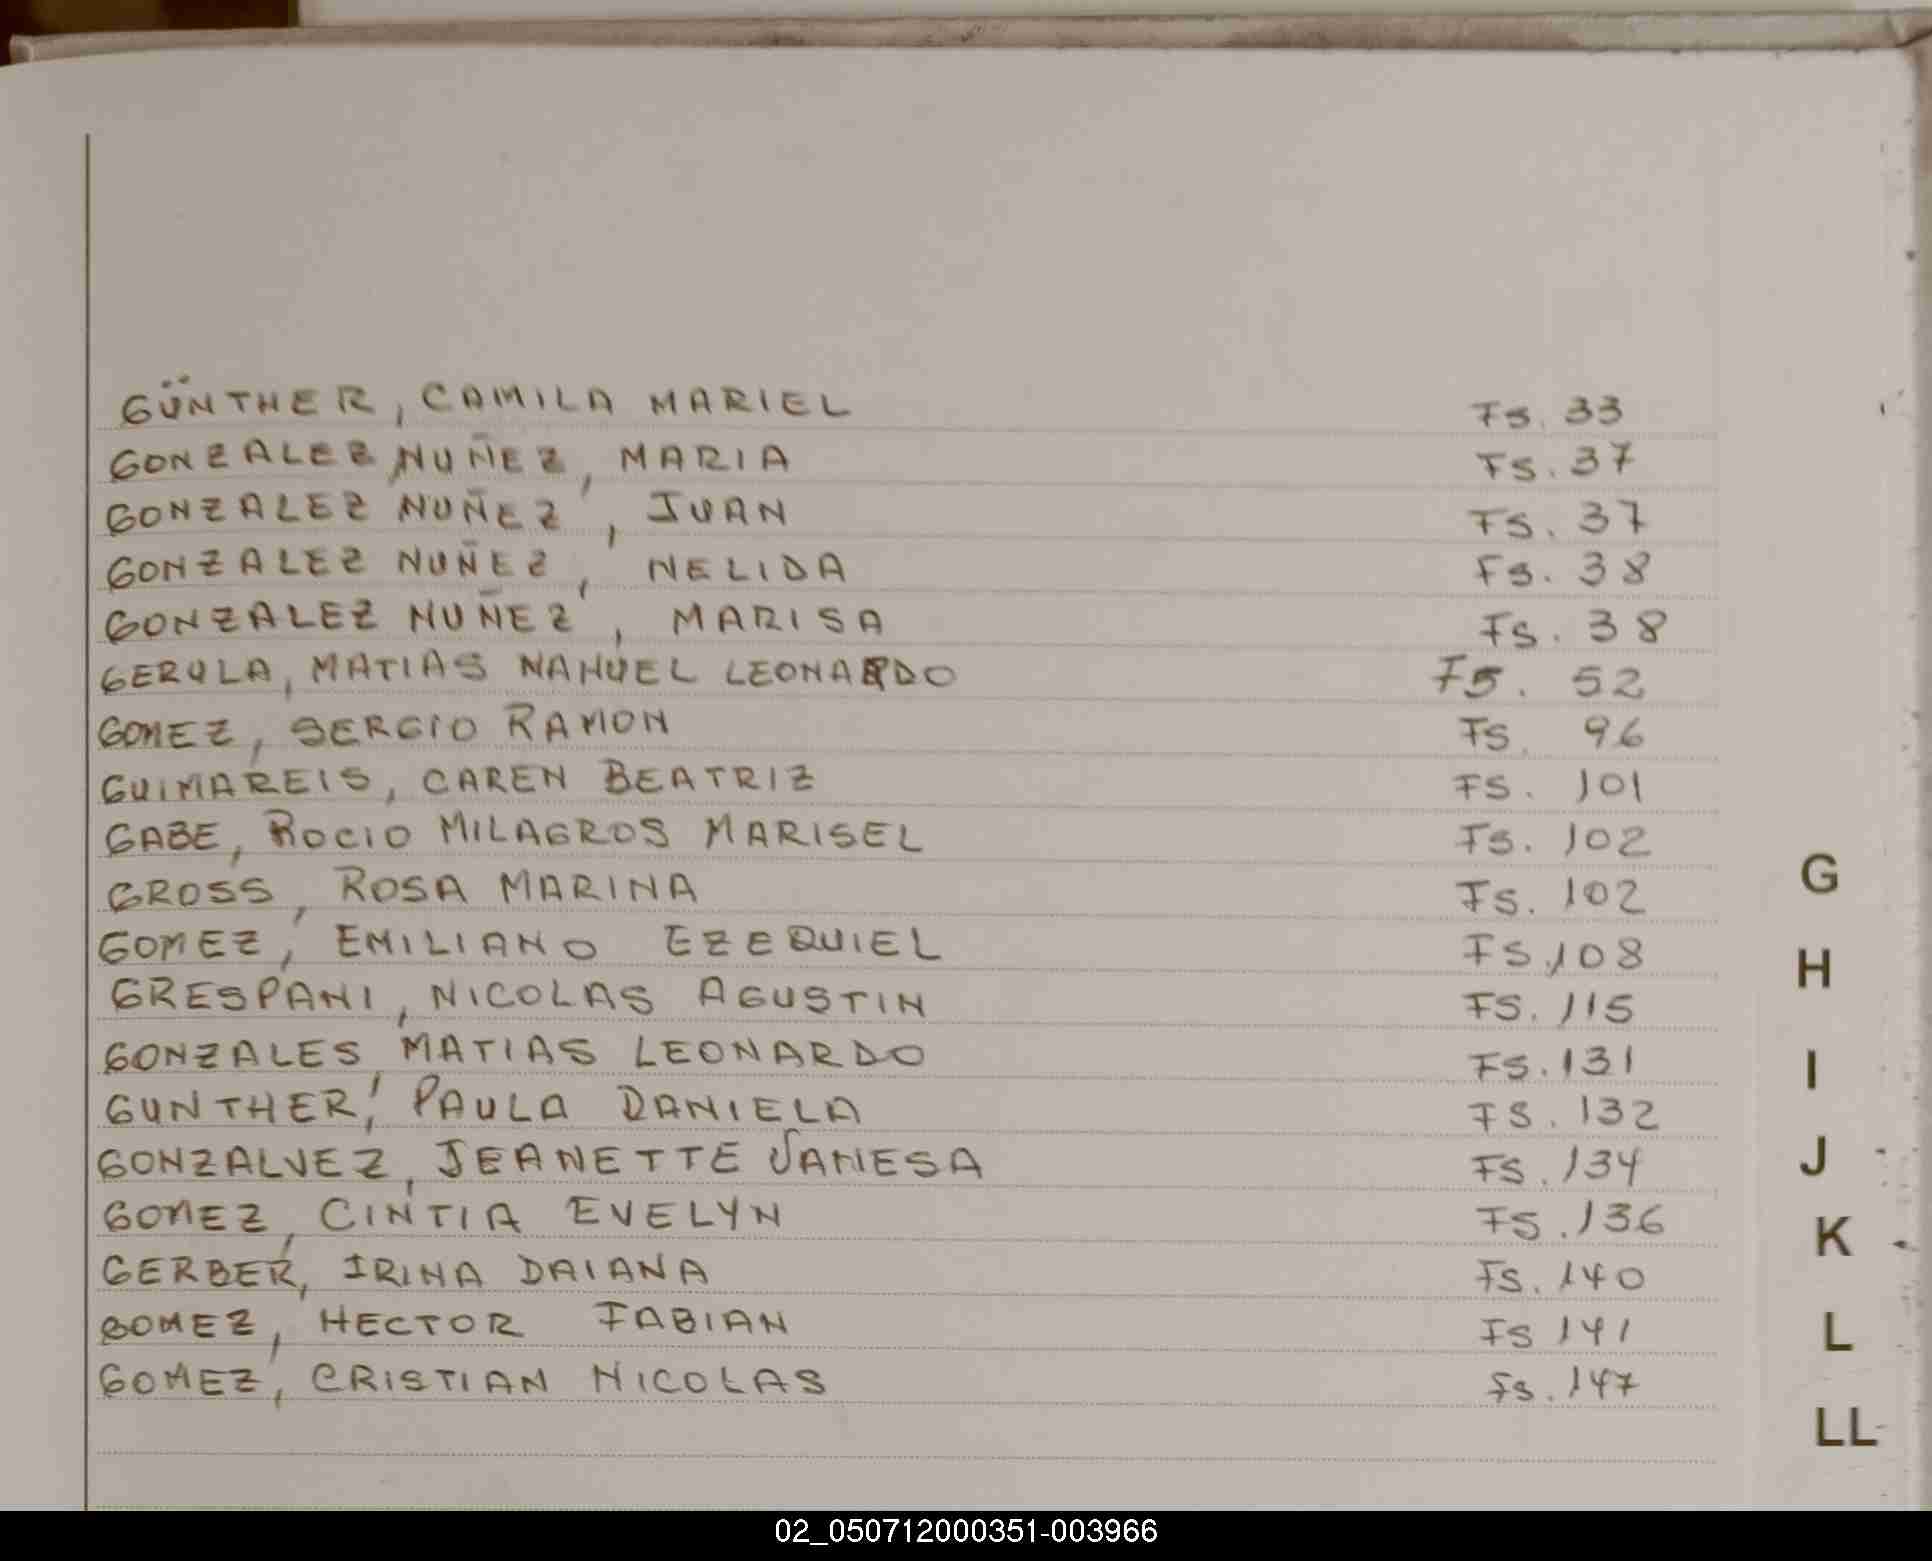 GÜNTHER, CAMILA MARIEL Fs. 33
GONZALEZ NUÑEZ, MARIA Fs. 37
GONZALEZ NUÑEZ, JUAN Fs. 37
GONZALEZ NUÑEZ, NELIDA Fs. 38
GONZALEZ NUÑEZ, MARISA Fs. 38
GERULA, MATIAS NAHUEL LEONARDO Fs. 52
GOMEZ, SERGIO RAMON Fs. 96
GUIMAREIS, CAREN BEATRIZ Fs. 101
GABE, ROCIO MILAGROS MARISEL Fs. 102
GROSS, ROSA MARINA Fs. 102
GOMEZ, EMILIANO EZEQUIEL Fs. 108
GRESPANI, NICOLAS AGUSTIN Fs. 115
GONZALES, MATIAS LEONARDO Fs. 131
GUNTHER, PAULA DANIELA Fs. 132
GONZALVEZ, JEANETTE VANESA Fs. 134
GOMEZ, CINTIA EVELYN Fs. 136
GERBER, IRINA DAIANA Fs. 140
GOMEZ, HECTOR FABIAN Fs 141
GOMEZ, CRISTIAN NICOLAS Fs. 147
G
H
I
J
K
L
LL
02_050712000351-003966